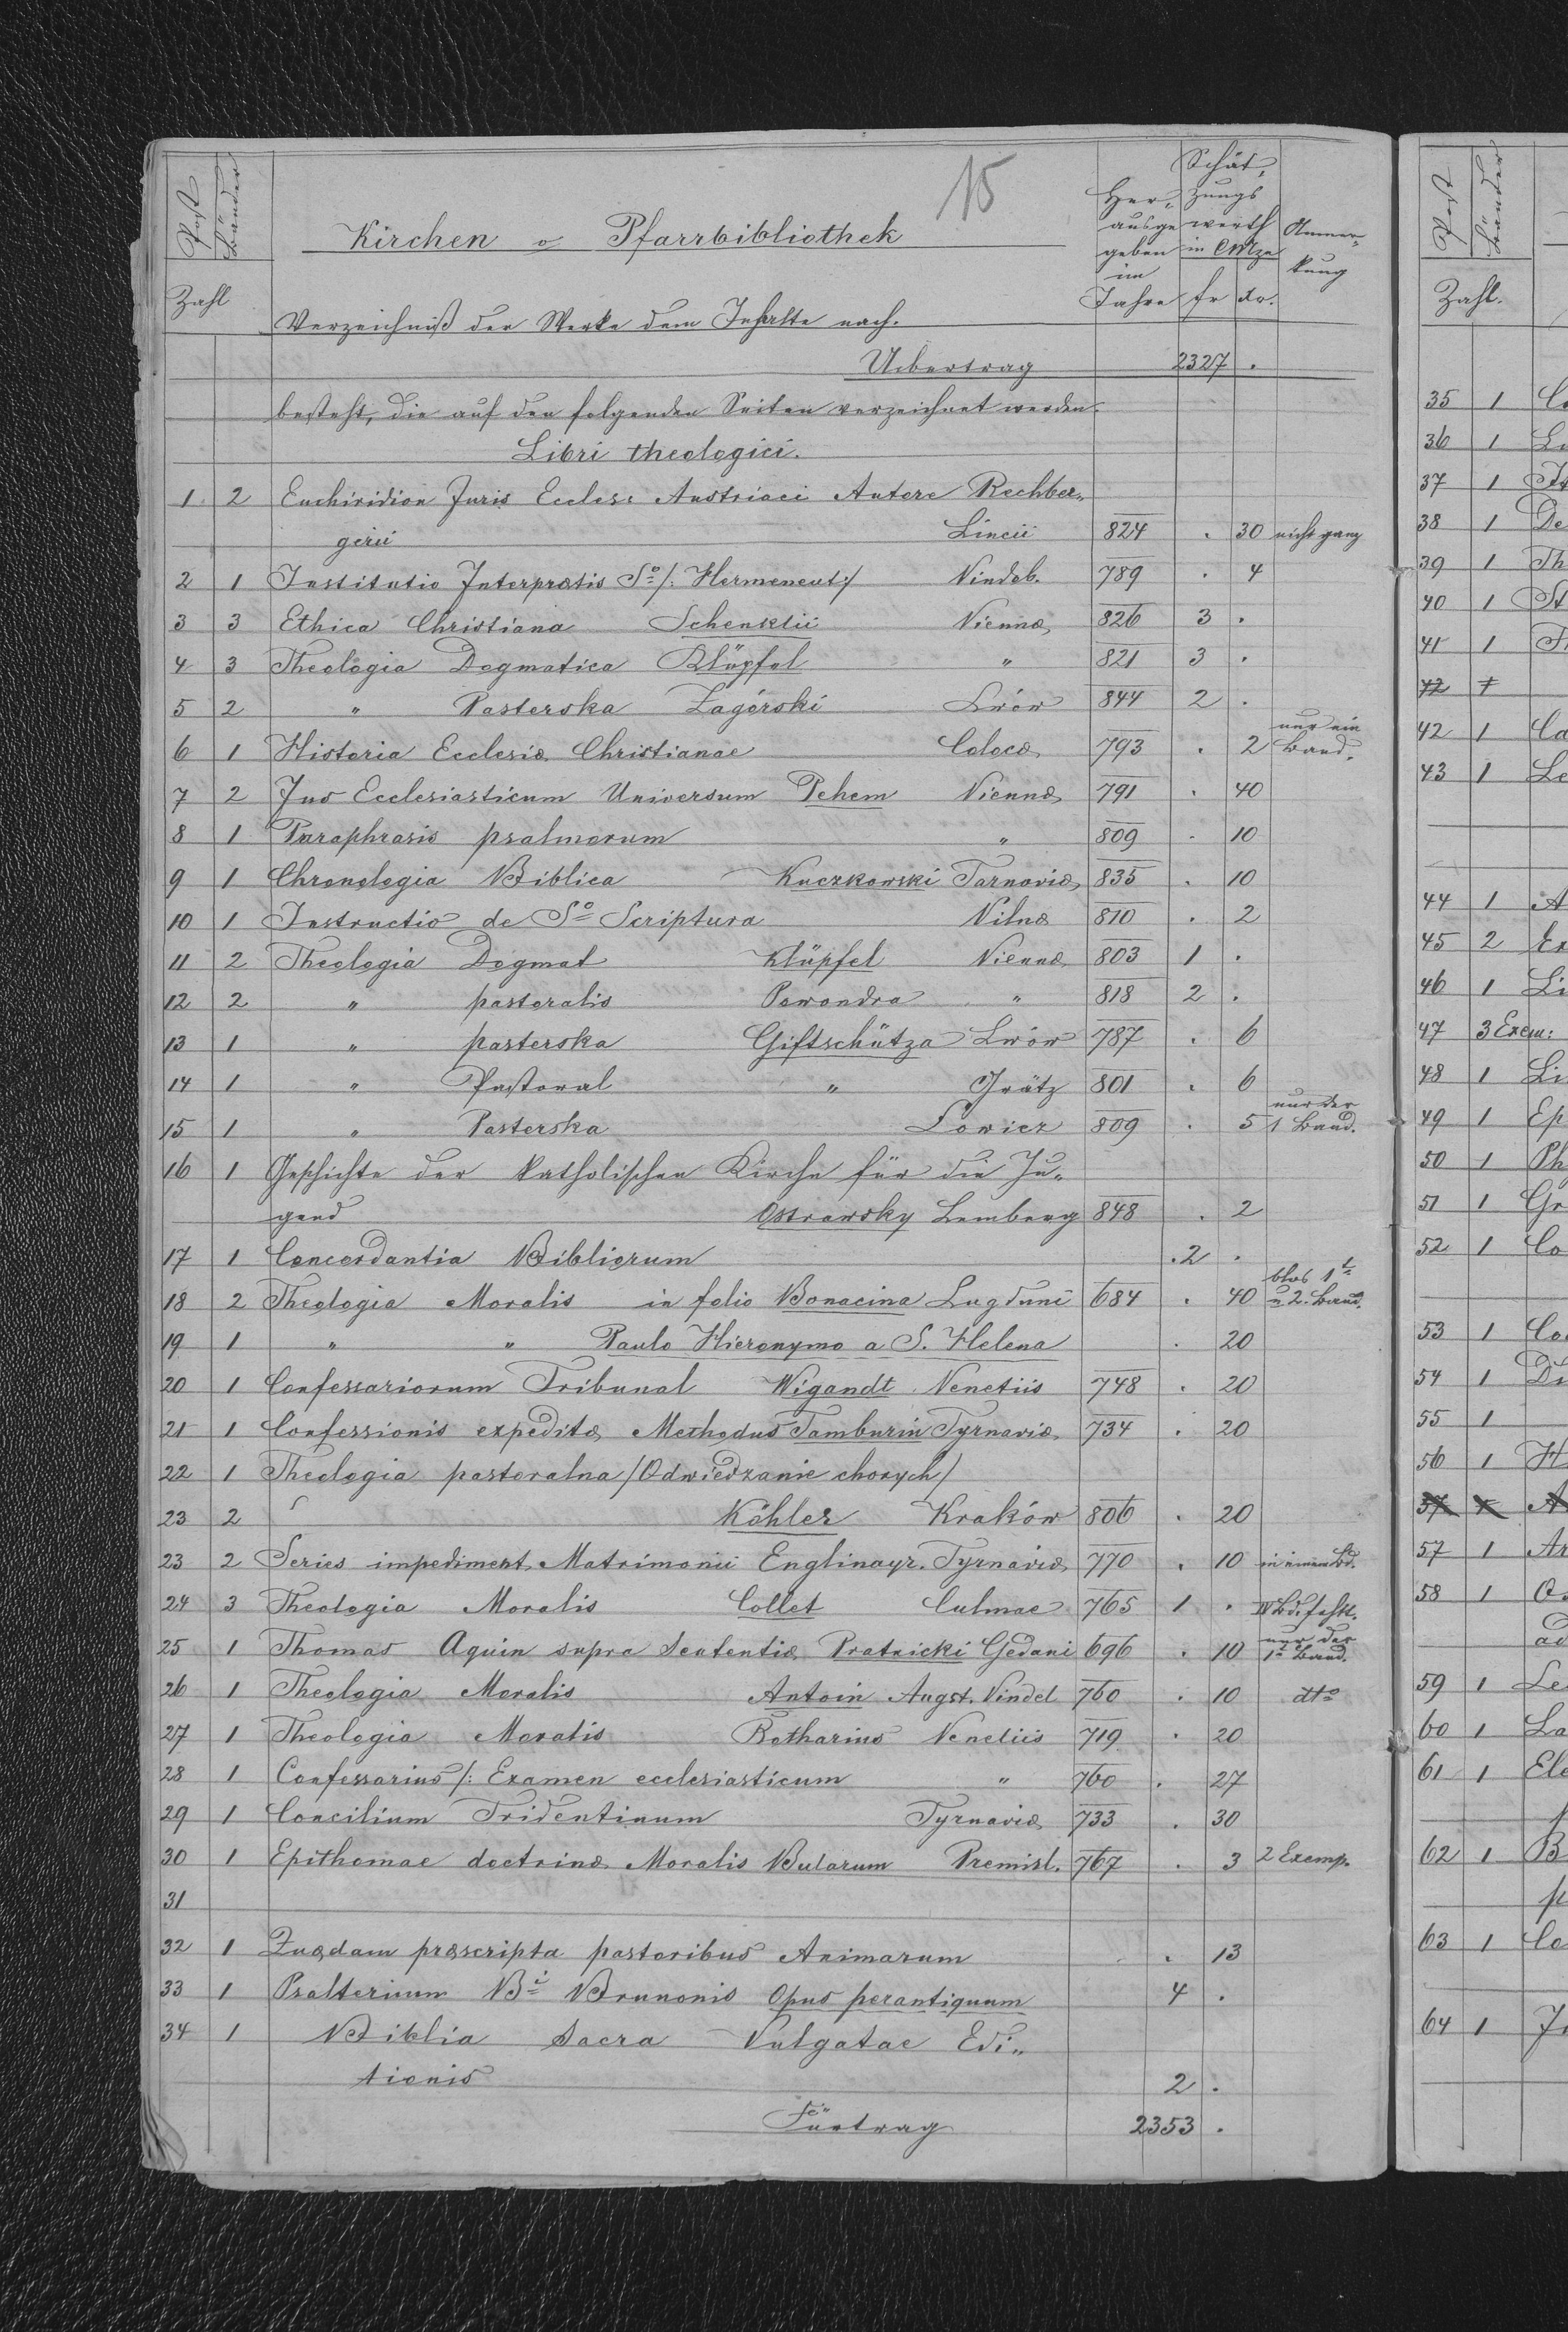 15
Post Zahl
Bänder
Kirchen o Pfarrbibliothek
Verzeichniß der Werke dem Inhalte nach.
Herausgegeben im Jahre
Schätzungswerth in CMze
fr xr.
Anmerkung
Uibertrag 2327 .
besteht, die auf den folgenden Seiten verzeichnet werden.
Libri theologici.
1 2 Enchiridion Juris Eccles: Austriaci Autore Rechber„
gerii Lincii 824 . 30 nicht ganz
2 1 Institutio Interpretis So /: Hermeneut:/ Vindob. 789 . 4
3 3 Ethica Christiana Schenklii Viennæ 826 3 .
4 3 Theologia Dogmatica Klüpfel " 821 3 .
5 2 " Pasterska Zagórski Lwów 844 2 .
6 1 Historia Ecclesiæ Christianae Colocæ 793 . 2 nur ein Band.
7 2 Jus Ecclesiasticum Universum Pehem Viennæ 791 . 40
8 1 Paraphrasis psalmorum " 809 . 10
9 1 Chronologia Biblica Kuczkowski Tarnoviæ 835 . 10
10 1 Instructio de So Scriptura Vilnæ 810 . 2
11 2 Theologia Dogmat Klüpfel Viennæ 803 1 .
12 2 " pastoralis Powondra " 818 2 .
13 1 " pasterska Giftschütza Lwów 787 . 6
14 1 " Pastoral " Grätz 801 . 6
15 1 " Pasterska Lowicz 809 . 5 nur der 1 Band.
16 1 Geschichte der katholischen Kirche für die Ju„
gend Ostrawsky Lemberg 848 . 2
17 1 Concordantia Bibliorum . 2 .
18 2 Theologia Moralis in folio Bonacina Lugduni 684 . 40 blos 1t u 2. Band.
19 1 " " Paulo Hieronymo a S. Helena . 20
20 1 Confessariorum Tribunal Wigandt Venetiis 748 . 20
21 1 Confessionis expeditæ Methodus Tamburin Tyrnaviæ 734 . 20
22 1 Theologia pastoralna /Odwiedzanie chorych/
23 2 Köhler Kraków 806 . 20
23 2 Series impediment. Matrimonii Englmayr. Tyrnaviæ 770 . 10 in einem Bd.
24 3 Theologia Moralis Collet Culmae 765 1 . IV Bd. fehlt.
25 1 Thomas Aquin supra Sententiæ Pratnicki Gedani 696 . 10 nur der 1te Band.
26 1 Theologia Moralis Antoin Augst. Vindel 760 . 10 dto
27 1 Theologia Moralis Rotharius Venetiis 719 . 20
28 1 Confessarius /: Examen ecclesiasticum " 760 . 27
29 1 Concilium Tridentinum Tyrnaviæ 733 . 30
30 1 Epithomae doctrinæ Moralis Bularum Premisl. 767 . 3 2 Exemp.
31
32 1 Quædam præscripta pastoribus Animarum . 13
33 1 Psalterium Bi Brunonis Opus perantiquum 4 .
34 1 Biblia Sacra Vulgatae Edi„
tionis 2 .
Fürtrag 2353 .
Post Zahl.
Bänder
35 1 Co
36 1
37 1
38 1 De
39 1 Th
40 1 St
41 1
42
42 1 Ca
43 1 Le
44 1 A
45 2 Ex
46 1 Li
47 3 Exem:
48 1 Li
49 1 Ep
50 1 Ph
51 1 Gr
52 1 Co
53 1 Co
54 1 Di
55 1
56 1 H
37
57 1 Ar
58 1
ad
59 1 Le
60 1 La
61 1 Ele
p
62 1 B
p
63 1 Co
64 1